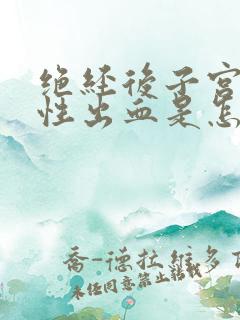 绝经后子宫
性出血是怎
乔-德拉维多
未经同意禁止转载